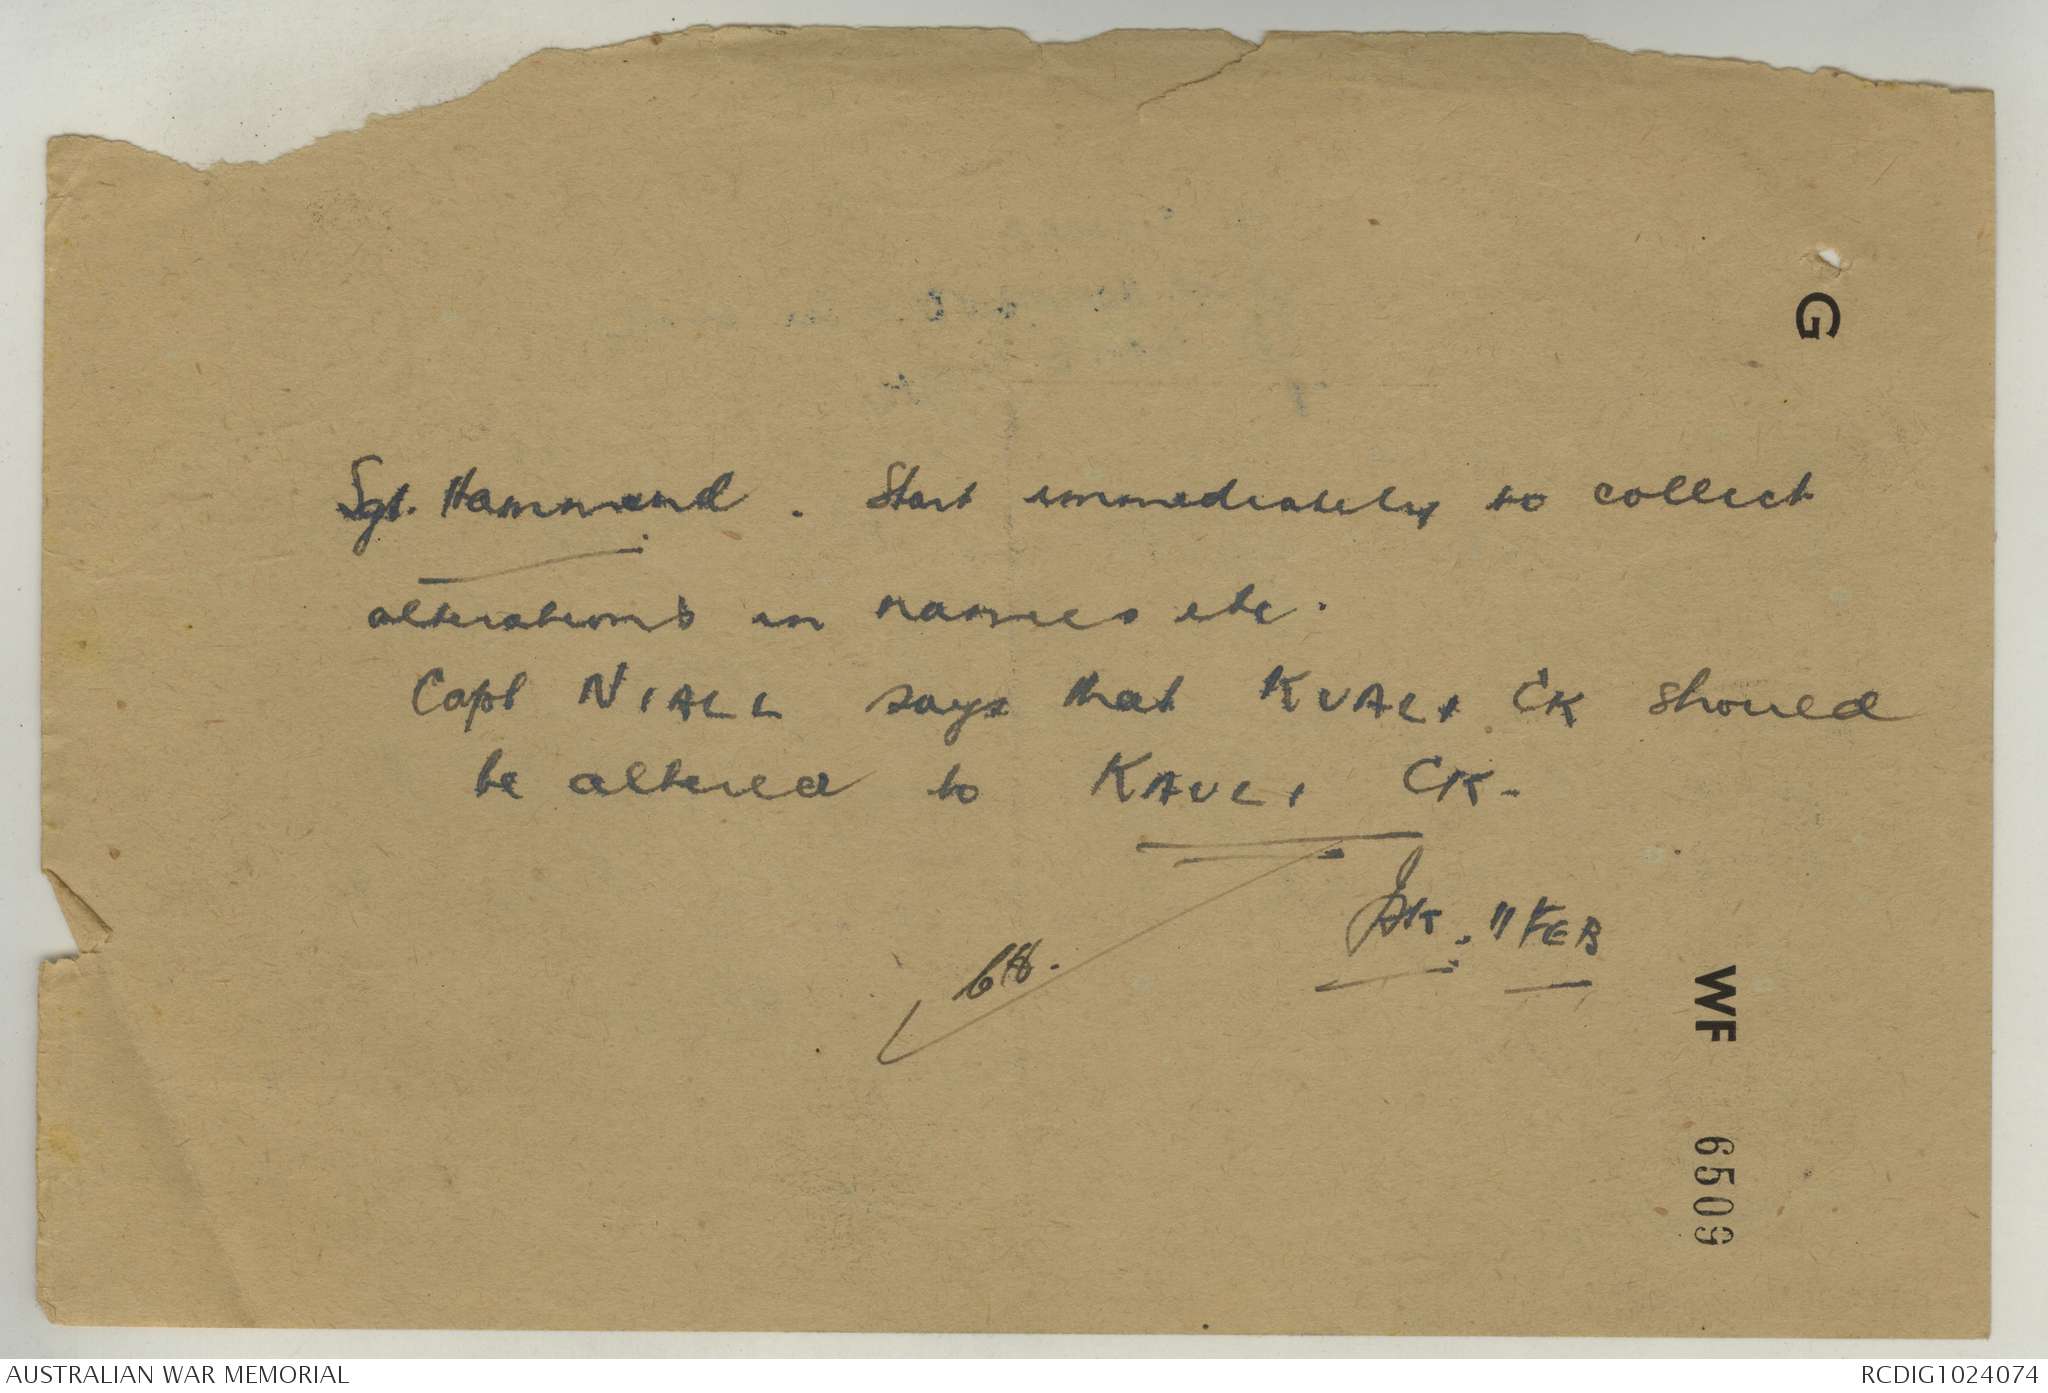 G
Sgt. Hammond. Start immediately to collect
alterations in names etc.
Capt NIALL says that KUALI CK should
be altered to KAULI CK.
11 FEB
WF 6509
AUSTRALIAN WAR MEMORIAL
RCDIG1024074